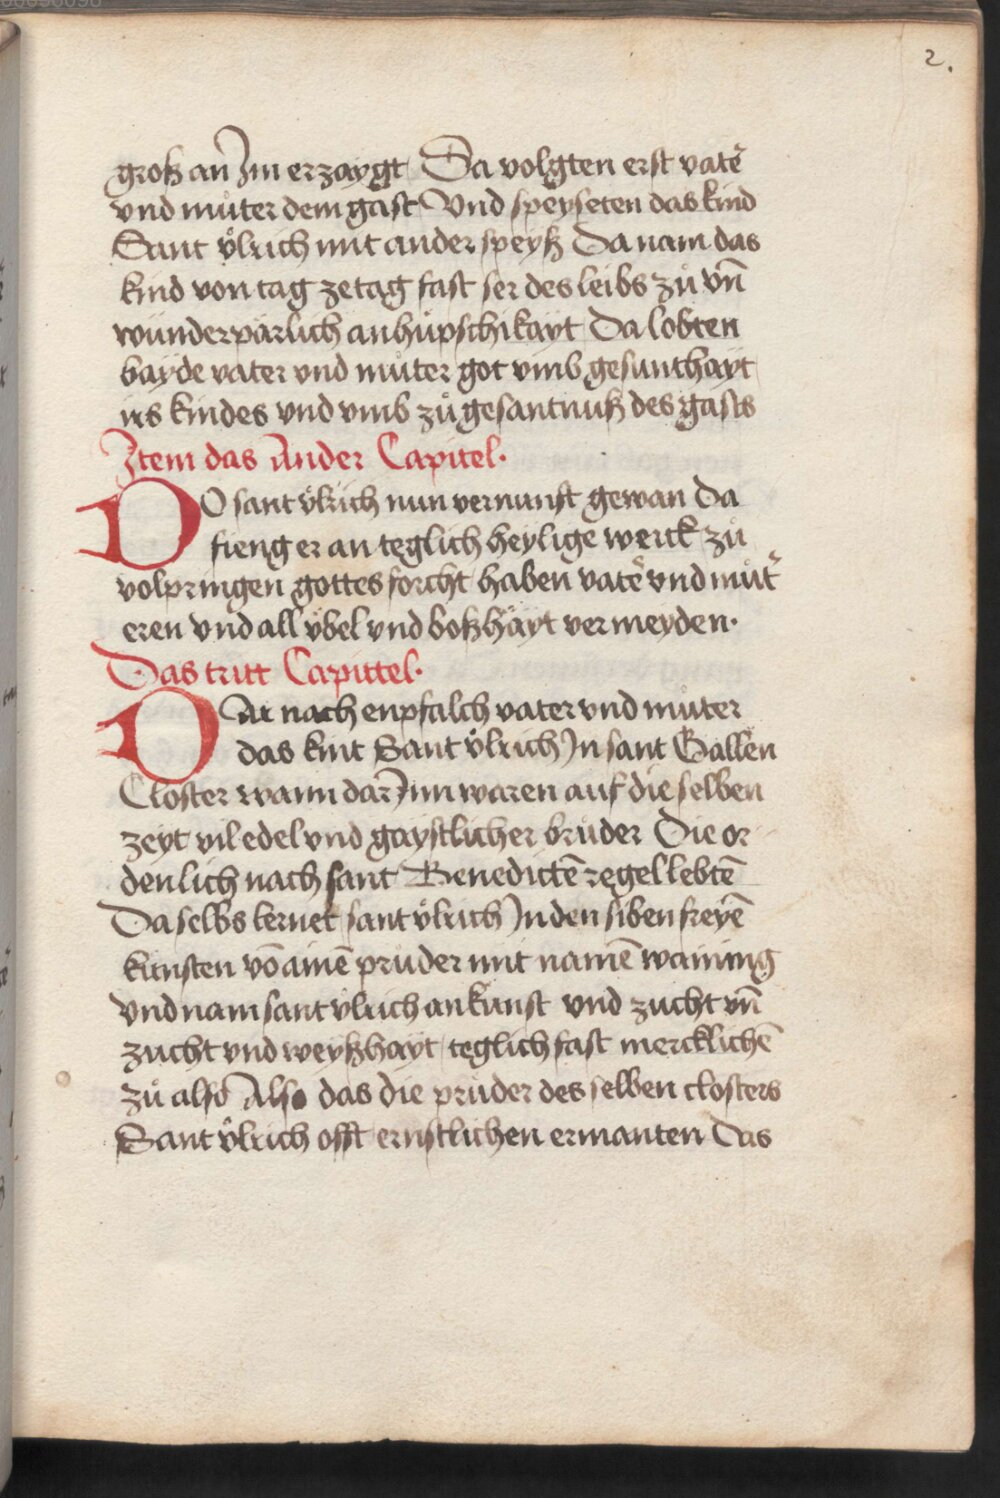 2.
groß an Im erzaygt Da volgten erst vate᷑
vnd mu̇ter dem gast Vnd speyseten das kind
Sant v̊lrich mit ander speyß Da nam das
kind von tag ze tag fast ser des leibs zů vn̄
wunderparlich an hupschikayt Da lobten
bayde vater vnd mu̇ter got vmb gesunthayt
irs kindes vnd vmb zů gesantnuß des gasts
Item das Ander Capitel.
DO sant v̊lrich nun vernunft gewan da
fieng er an teglich heylige werck zů
volpringen gottes forcht haben vate᷑ vnd můt᷑
eren vnd all v̈bel vnd boßhäyt vermeyden.
Das tritt Capittel.
DAr nach enpfalch vater vnd mu̇ter
das kint Sant v̊lrich In sant Gallen
Closter wann dar Inn waren auf die selben
zeyt vil edel vnd gaystlicher bru̇der Die or
denlich nach sant Benedictē regel lebtē
Da selbs lernet sant v̊lrich In den siben freyē
kunsten vō ainē pruder mit namē waning
vnd nam sant v̊lrich an kunst vnd zucht vn̄
zucht vnd weyßhayt teglich fast mercklichē
zů also Also das die pruder des selben closters
Sant v̊lrich offt ernstlichen ermanten Das